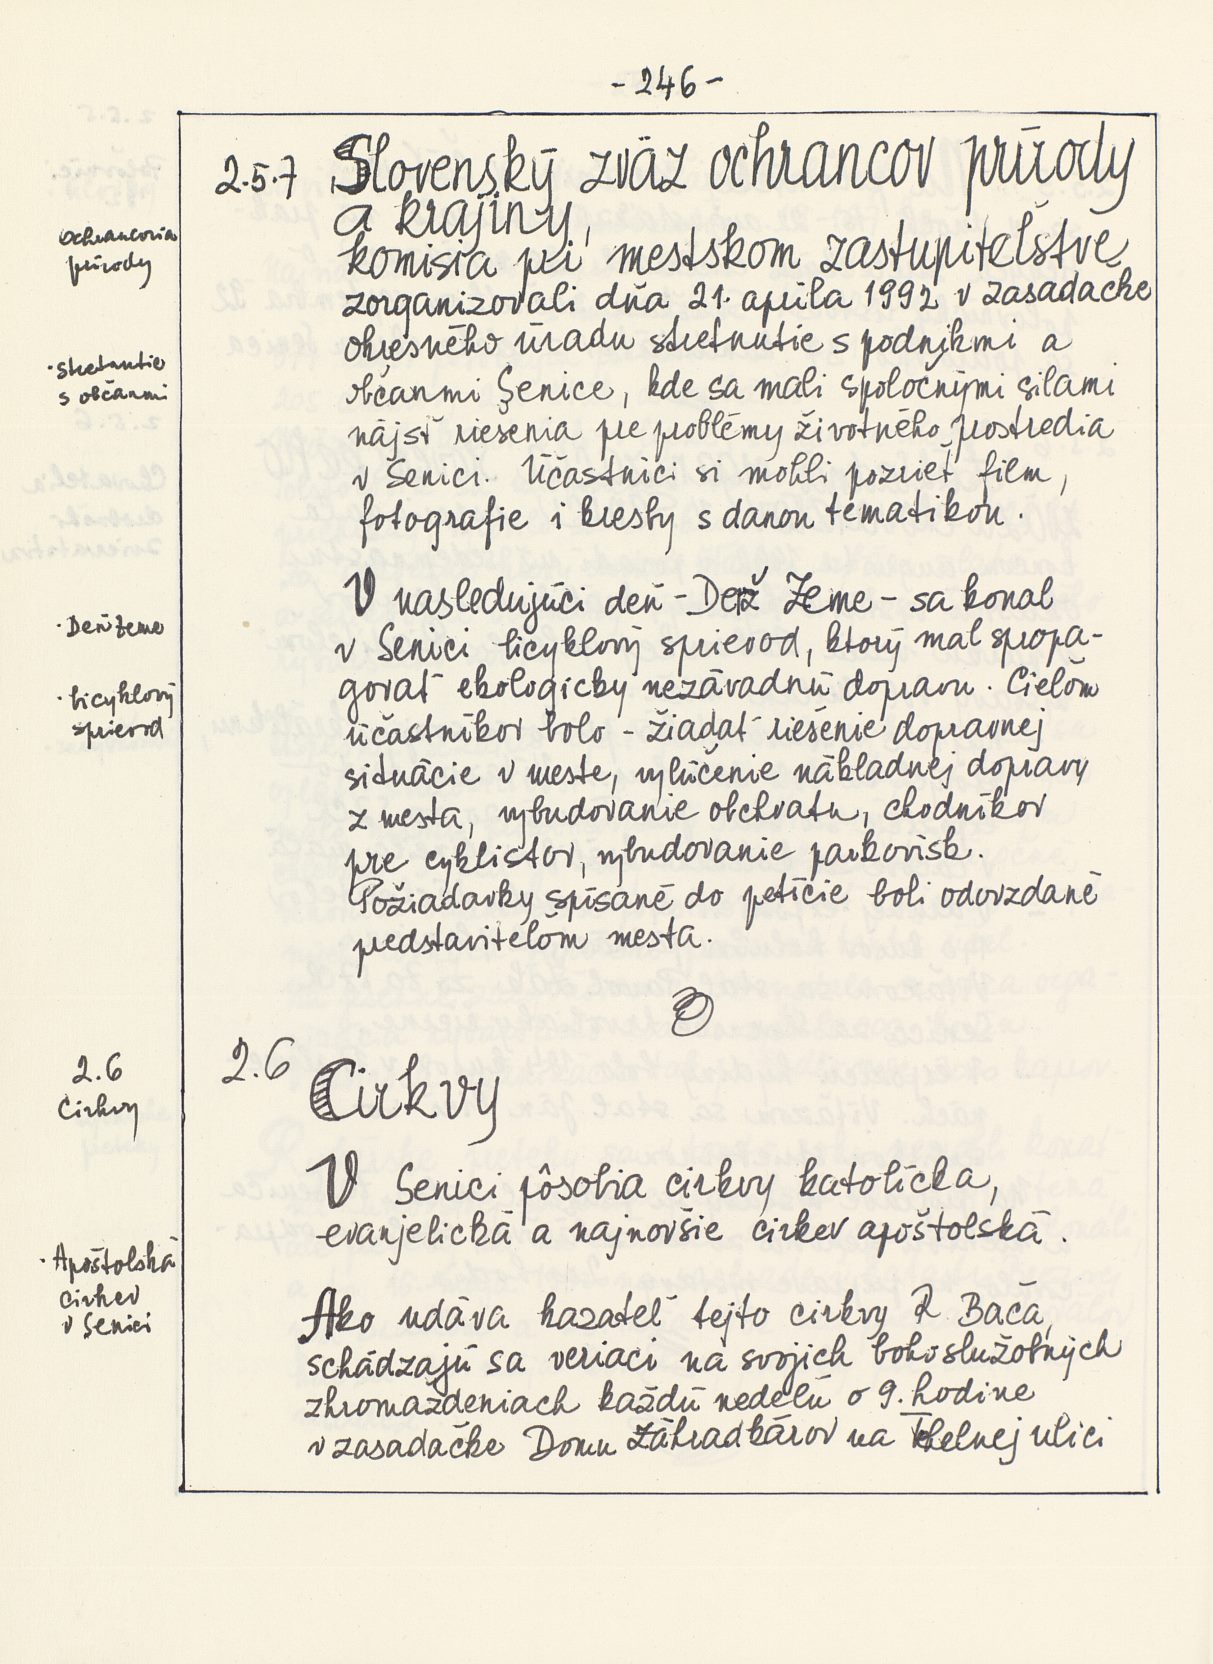 - 246 -
2.5.7 Slovenský zväz ochrancov prírody
a krajiny,
Ochrancovia
prírody
komisia pri mestskom zastupiteľstve
zorganizovali dňa 21. apríla 1992 v zasadačke
okresného úradu stretnutie s podnikmi a
· stretnutie
s občanmi
občanmi Senice, kde sa mali spoločnými silami
nájsť riešenia pre problémy životného prostredia
v Senici. Účastníci si mohli pozrieť film,
fotografie i kresby s danou tematikou.
V nasledujúci deň - Deň Zeme - sa konal
· Deň Zeme
v Senici bicyklový sprievod, ktorý mal propa-
govať ekologicky nezávadnú dopravu. Cieľom
· bicyklový
sprievod
účastníkov bolo - žiadať riešenie dopravnej
situácie v meste, vylúčenie nákladnej dopravy
z mesta, vybudovanie obchvatu, chodníkov
pre cyklistov, vybudovanie parkovísk.
Požiadavky spísané do petície boli odovzdané
predstaviteľom mesta.
2.6
Cirkvy
2.6 Cirkvy
V Senici pôsobia cirkvy katolícka,
evanjelická a najnovšie cirkev apoštolská.
· Apoštolská
cirkev
v Senici
Ako udáva kazateľ tejto cirkvy R Bača,
schádzajú sa veriaci na svojich bohoslužobných
zhromaždeniach každú nedeľu o 9. hodine
v zasadačke Domu Záhradkárov na ulici